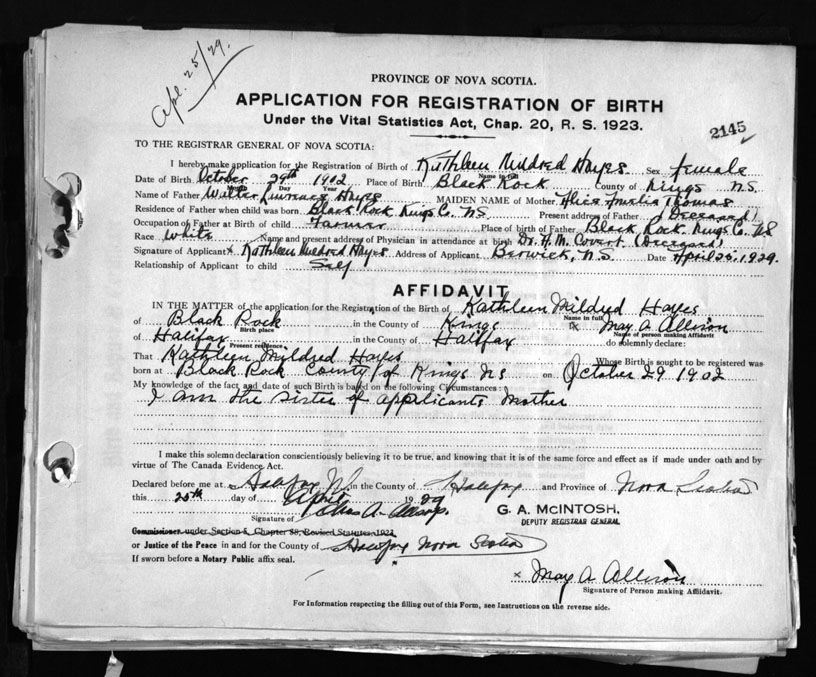 Apl. 25/29.
PROVINCE OF NOVA SCOTIA.
APPLICATION FOR REGISTRATION OF BIRTH
Under the Vital Statistics Act, Chap. 20, R. S. 1923.
2145
TO THE REGISTRAR GENERAL OF NOVA SCOTIA:
I hereby make application for the Registration of Birth of Kathleen Mildred Hayes Sex female
Name in full
Date of Birth October 29th 1902 Place of Birth Black Rock County of Kings N.S.
Month Day Year
Name of Father Walter Hayes MAIDEN NAME of Mother Alice Amelia Thomas
Residence of Father when child was born Black Rock Kings Co. N.S. Present address of Father (Deceased)
Occupation of Father at Birth of child Farmer Place of birth of Father Black Rock Kings Co. NS
Race White Name and present address of Physician in attendance at birth Dr. H. M. Covert (Deceased)
Signature of Applicant x Kathleen Mildred Hayes Address of Applicant Berwick, N.S. Date April 25, 1929.
Relationship of Applicant to child Self
AFFIDAVIT
IN THE MATTER of the application for the Registration of the Birth of Kathleen Mildred Hayes
Birth place Name in full
of Black Rock in the County of Kings May A. Allison
Name of person making Affidavit
of Halifax in the County of Halifax do solemnly declare:
Present residence
That Kathleen Mildred Hayes Whose Birth is sought to be registered was
born at Black Rock County of Kings NS on October 29 1902
My knowledge of the fact and date of such Birth is based on the following Circumstances:
I am the sister of applicants Mother
I make this solemn declaration conscientiously believing it to be true, and knowing that it is of the same force and effect as if made under oath and by
virtue of The Canada Evidence Act.
Declared before me at Halifax in the County of Halifax and Province of Nova Scotia
this 25th day of April 1929
G. A. McINTOSH,
DEPUTY REGISTRAR GENERAL
Signature of
Commissioner under Section 5, Chapter 38, Revised Statutes, 1923
or Justice of the Peace in and for the County of Halifax Nova Scotia
If sworn before a Notary Public affix seal.
x May A. Allison
Signature of Person making Affidavit.
For Information respecting the filling out of this Form, see Instructions on the reverse side.